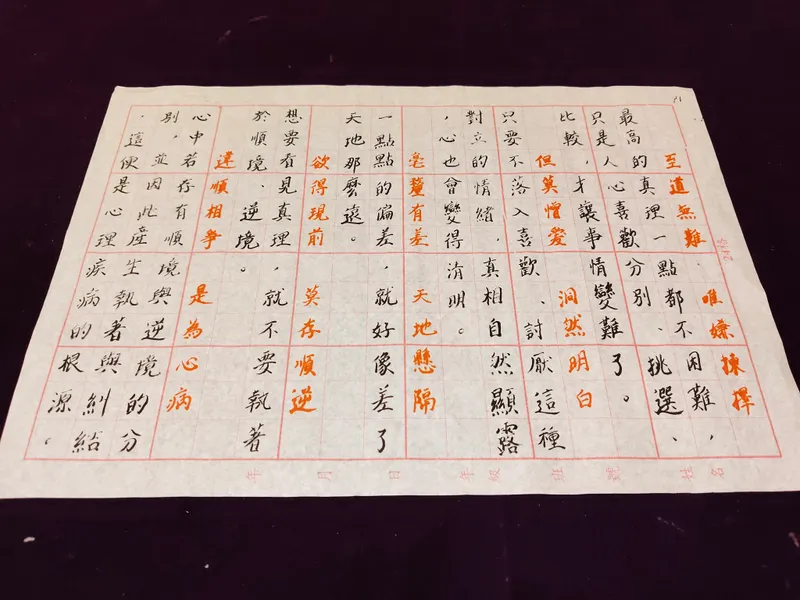 至道無難　唯嫌揀擇
最高的真理一點都不困難，
只是人心喜歡分別、挑選、
比較，才讓事情變難了。
但莫憎愛　洞然明白
只要不落入喜歡、討厭這種
對立的情緒，真相自然顯露
，心也會變得清明。
毫釐有差　天地懸隔
一點點的偏差，就好像差了
天地那麼遠。
欲得現前　莫存順逆
想要看見真理，就不要執著
於順境、逆境。
違順相爭　是為心病
心中若存有順境與逆境的分
別，並因此產生執著與糾結
，這便是心理疾病的根源。
年　月　日　年級　班　號　姓名